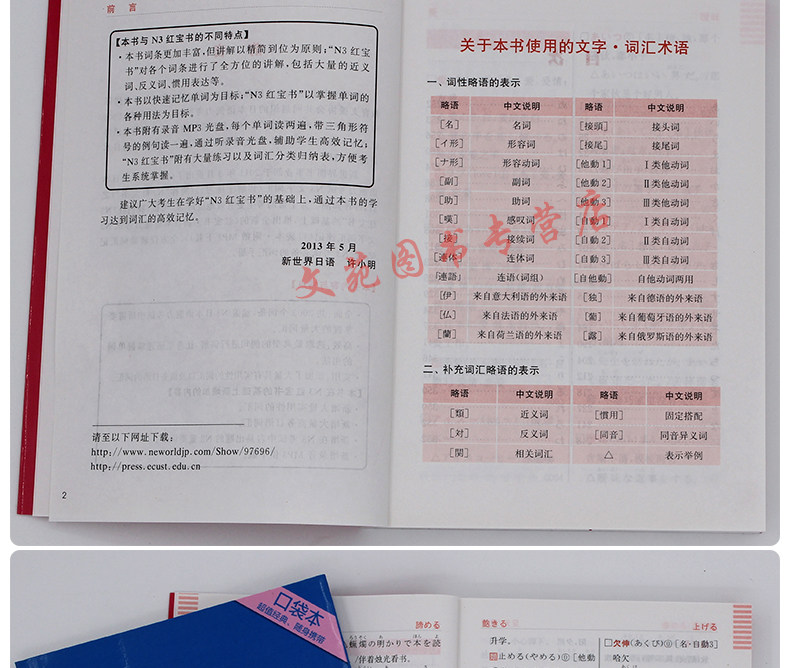 前 言
【本书与 N3 红宝书的不同特点】
·本书词条更加丰富,但讲解以精简到位为原则;“N3 红宝
书”对各个词条进行了全方位的讲解,包括大量的近义
词、反义词、惯用表达等。
·本书以快速记忆单词为目标;“N3 红宝书”以掌握单词的
各种用法为目标。
·本书附有录音 MP3 光盘,每个单词读两遍,带三角形符
号的例句读一遍,通过听录音光盘,辅助学生高效记忆;
“N3 红宝书”附有大量练习以及词汇分类归纳表,方便考
生系统掌握。
建议广大考生在学好“N3 红宝书”的基础上,通过本书的学
习达到词汇的高效记忆。
2013 年 5 月
新世界日语 许小明
请至以下网址下载:
http://www.neworldjp.com/Show/97696/
http://press.ecust.edu.cn
2
关于本书使用的文字·词汇术语
一、词性略语的表示
略语 中文说明 略语 中文说明
[名] 名词 [接頭] 接头词
[イ形] 形容词 [接尾] 接尾词
[ナ形] 形容动词 [他動1] Ⅰ类他动词
[副] 副词 [他動2] Ⅱ类他动词
[助] 助词 [他動3] Ⅲ类他动词
[嘆] 感叹词 [自動1] Ⅰ类自动词
[接] 接续词 [自動2] Ⅱ类自动词
[連体] 连体词 [自動3] Ⅲ类自动词
[連語] 连语(词组) [自他動] 自他动词两用
[伊] 来自意大利语的外来语 [独] 来自德语的外来语
[仏] 来自法语的外来语 [葡] 来自葡萄牙语的外来语
[蘭] 来自荷兰语的外来语 [露] 来自俄罗斯语的外来语
二、补充词汇略语的表示
略语 中文说明 略语 中文说明
[類] 近义词 [慣用] 固定搭配
[対] 反义词 [同音] 同音异义词
[関] 相关词汇 △ 表示举例
文苑图书专营店
口袋本
超值经典、随身携带
諦める
蝋燭の明かりで本を読
/伴着烛光看书。
飽きる
上げる
升学。
止める(やめる)⓪[他動
□欠伸(あくび)⓪[名·自動3]
哈欠